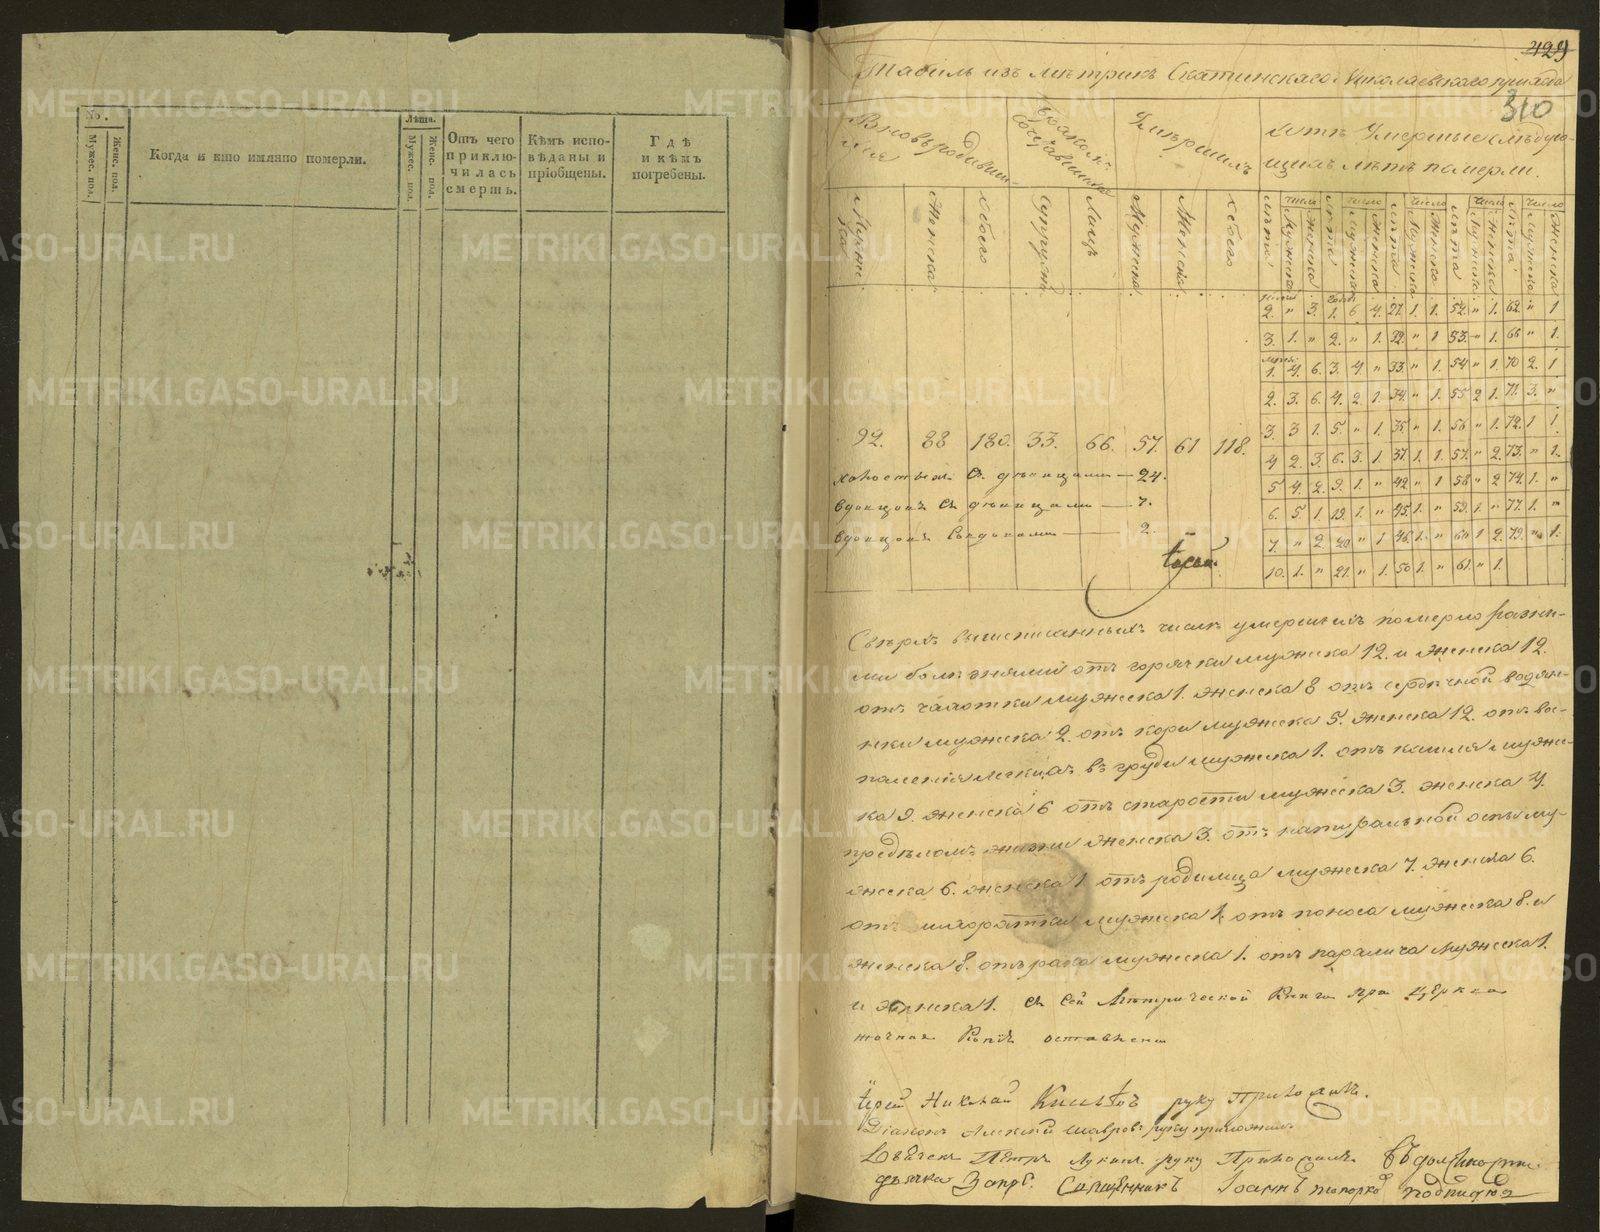 No.
Мужес. пол.
Женс. пол.
Когда и кто имянно померли.
Лѣта.
Мужес. пол.
Женс. пол.
Отъ чего приклю-
чилась
смерть.
Кѣмъ испо-
вѣданы и
пріобщены.
Гдѣ
и кѣмъ
погребены.
429
Табель изъ метрикъ Скатинскаго Николаевскаго прихода
310
Вновь родивши-
Бракомъ
сочетавшихся
Умершихъ
лѣтъ померли.
Мужеска
Женска
обоего
супружн
Лицъ
Мужеска
Женска
обоего
92. 88 180. 33. 66. 57. 61 118.
холостыхъ съ дѣвицами — 24.
вдовцовъ съ дѣвицами — 7.
вдовцовъ съ вдовами — 2.
2. " 3. 1. 6 4. 27. 1. 1. 52. " 1. 62. " 1
3. 1. " 2. " 1. 32. " 1 53. " 1. 66 " 1.
1. 4. 6. 3. 4. " 33. " 1. 54 " 1. 70 2. 1.
2. 3. 6. 4. 2. 1. 34. " 1. 55 2 1. 71. 3. "
3. 3 1. 5. " 1. 35 " 1. 56 " 1. 72. 1 1.
4 2. 3. 6. 3. 1. 37. 1. 1. 57. " 2. 73. " 1.
5 4. 2. 9. 1. " 42. " 1 58 " 2 74. 1. "
6. 5. 1. 19. 1. " 45. 1. " 59. 1. " 77. 1. "
7. " 2. 20 " 1 46. 1. " 60 1 2. 79. " 1.
10. 1. " 21. " 1. 50 1. " 61. " 1.
вышеписанныхъ числъ умершихъ померло разны-
ми болѣзнями отъ горячки мужеска 12. и женска 12.
отъ чахотки мужеска 1. женска 8 отъ сердечной водян-
ки мужеска 2. отъ кори мужеска 5. женска 12. отъ вос-
паленія легкихъ въ груди мужеска 1. отъ кашля мужес-
ка 9. женска 6 отъ старости мужеска 3. женска 4.
женска 3. отъ натуральной оспы му-
жеска 6. женска 1 отъ родимца мужеска 7. женска 6.
отъ лихорадки мужеска 1. отъ поноса мужеска 8. и
женска 8. отъ рака мужеска 1. отъ паралича мужеска 1.
и женска 1. съ сей Метрической Книги при церкви
точная Копія оставлена
Іерей Николай руку Приложилъ.
Діаконъ Алексій Шавровъ руку приложилъ
Петръ Лукинъ руку Приложилъ. Въ должности
дьячка Священникъ Іоаннъ
METRIKI.GASO-URAL.RU